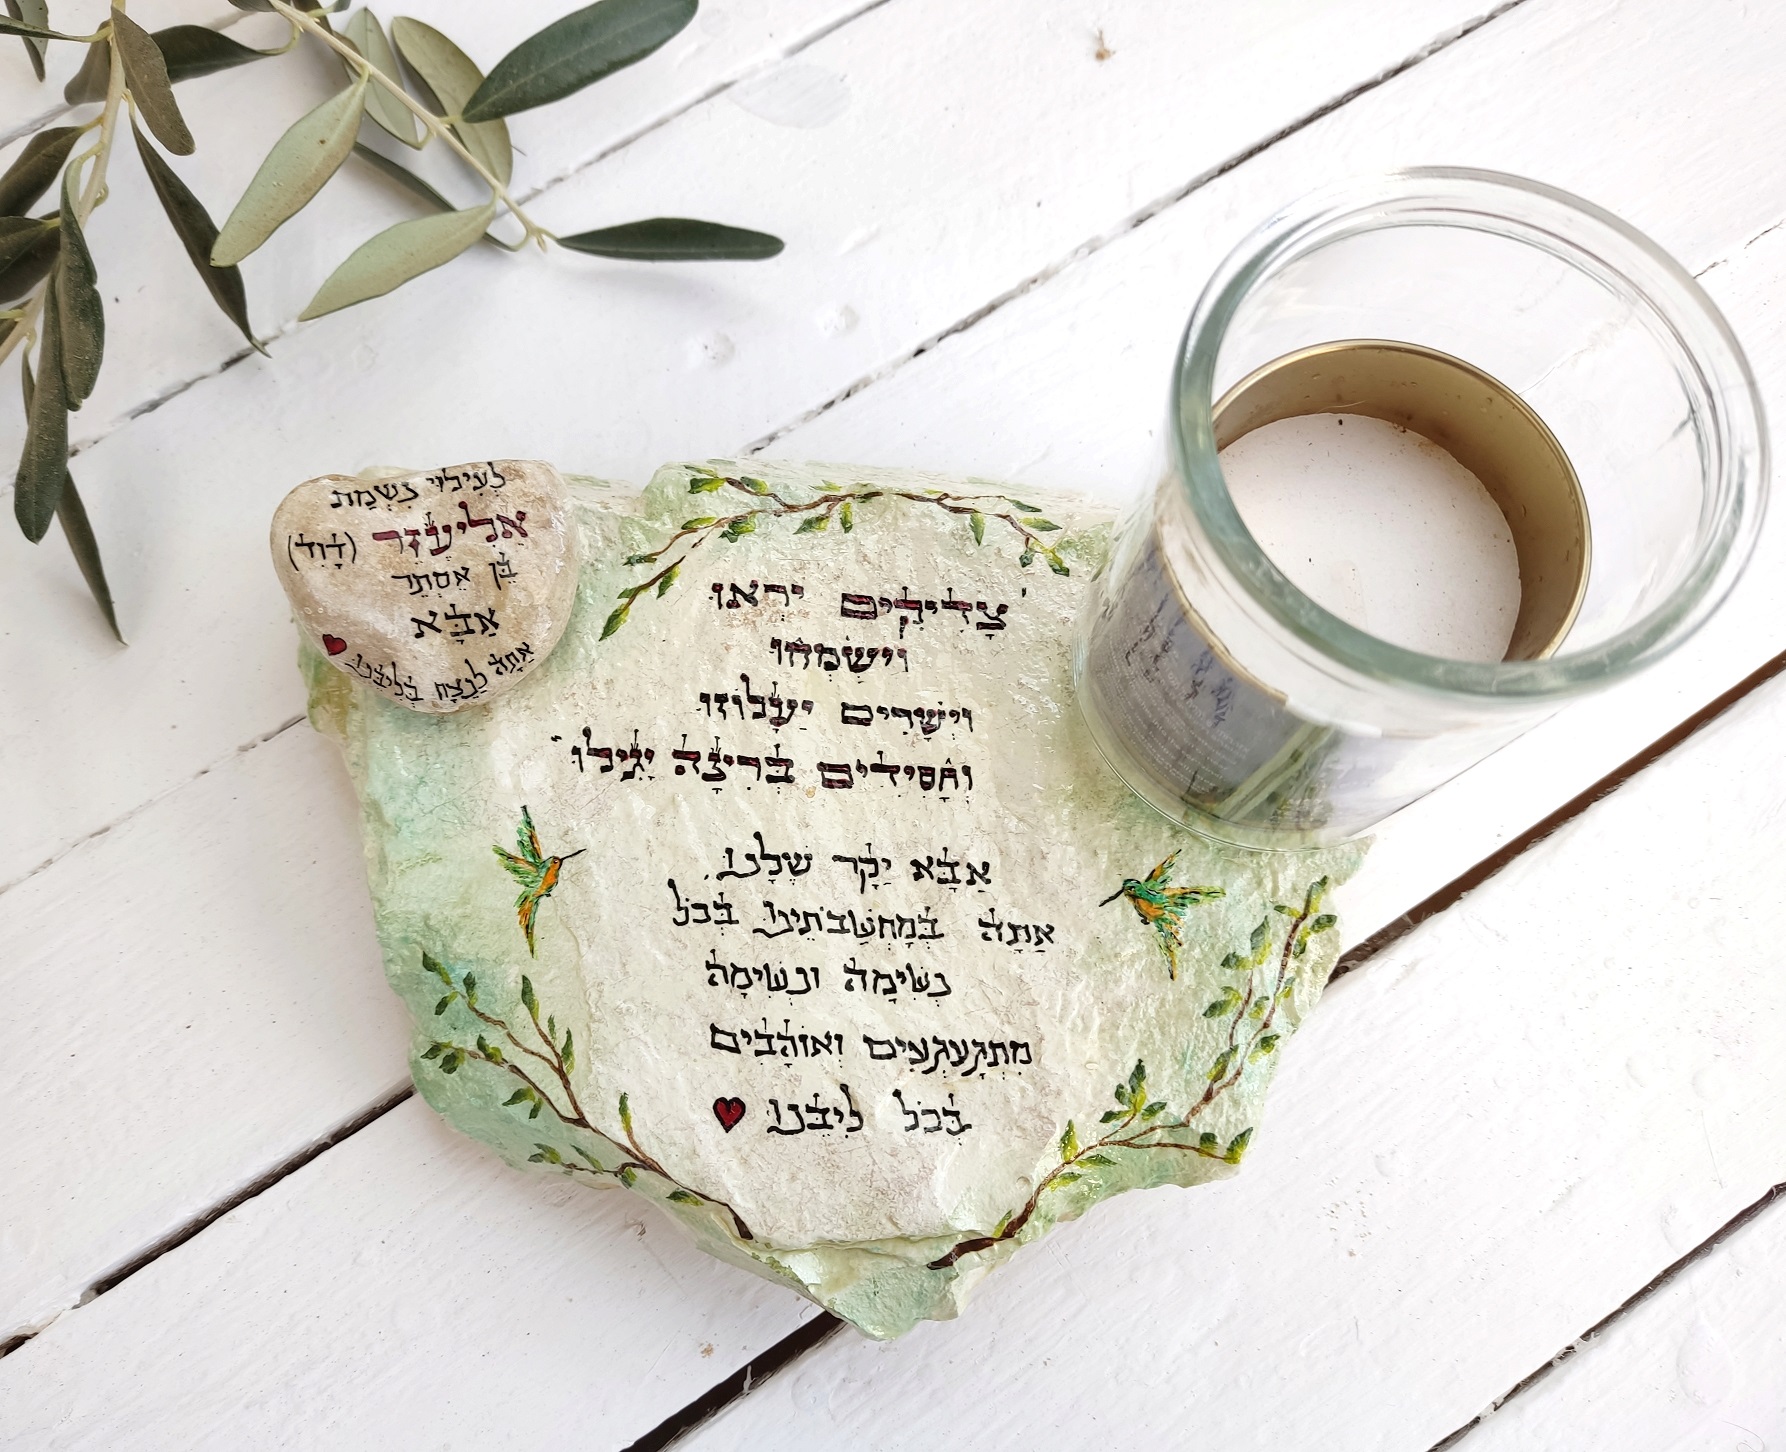 לְעִילוּי נִשְׁמַת
אֱלִיעֶזֶר (דָוִד)
בֶּן אֶסְתֵּר
אַבָּא
אַתָּה לָנֶצַח בְּלִיבֵּנוּ
'צַדִיקִים יִרְאוּ
וְיִשְׂמְחוּ
וִישָׁרִים יַעֲלוֹזוּ
וְחָסִידִים בְּרִינָה יָגִילוּ"
אַבָּא יָקָר שֶׁלָנוּ.
אַתָּה בְּמַחְשְׁבֹתֵינוּ בְּכֹל
נְשִׁימָה וּנְשִׁימָה
מִתְגַעְגְעִים וְאוֹהֲבִים
בְּכֹל לִיבֵּנוּ